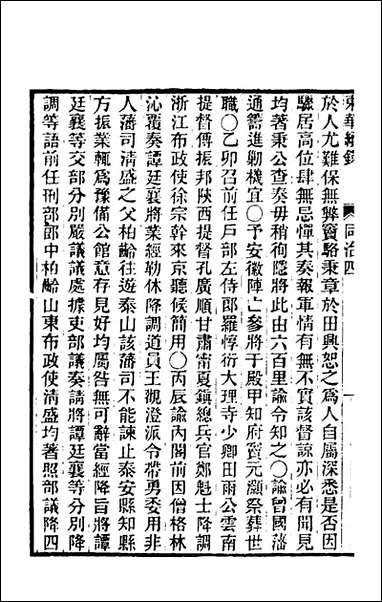 東華續錄　同治四　一
於人尤難保無弊竇駱秉章於田興恕之爲人自屬深悉是否因
驟居高位肆無忌憚其奏報軍情有無不實該督諒亦必有聞見
均著秉公查奏毋稍徇隱將此由六百里諭令知之〇諭曾國藩
通籌進勦機宜〇予安徽陣亡參將于殿甲知府賈元灝祭葬世
職〇乙卯召前任戶部左侍郎羅惇衍大理寺少卿田雨公雲南
提督傅振邦陝西提督孔廣順甘肅甯夏鎮總兵官鄭魁士降調
浙江布政使徐宗幹來京聽候簡用〇丙辰諭內閣前因僧格林
沁覆奏譚廷襄將業經勒休降調道員王觀澄派令帶勇委用非
人藩司清盛之父柏齡往遊泰山該藩司不能諫止泰安縣知縣
方振業輒爲豫備公館意存見好均屬咎無可辭當經降旨將譚
廷襄等交部分別嚴議議處據吏部議奏請將譚廷襄等分別降
調等語前任刑部郎中柏齡山東布政使清盛均著照部議降四